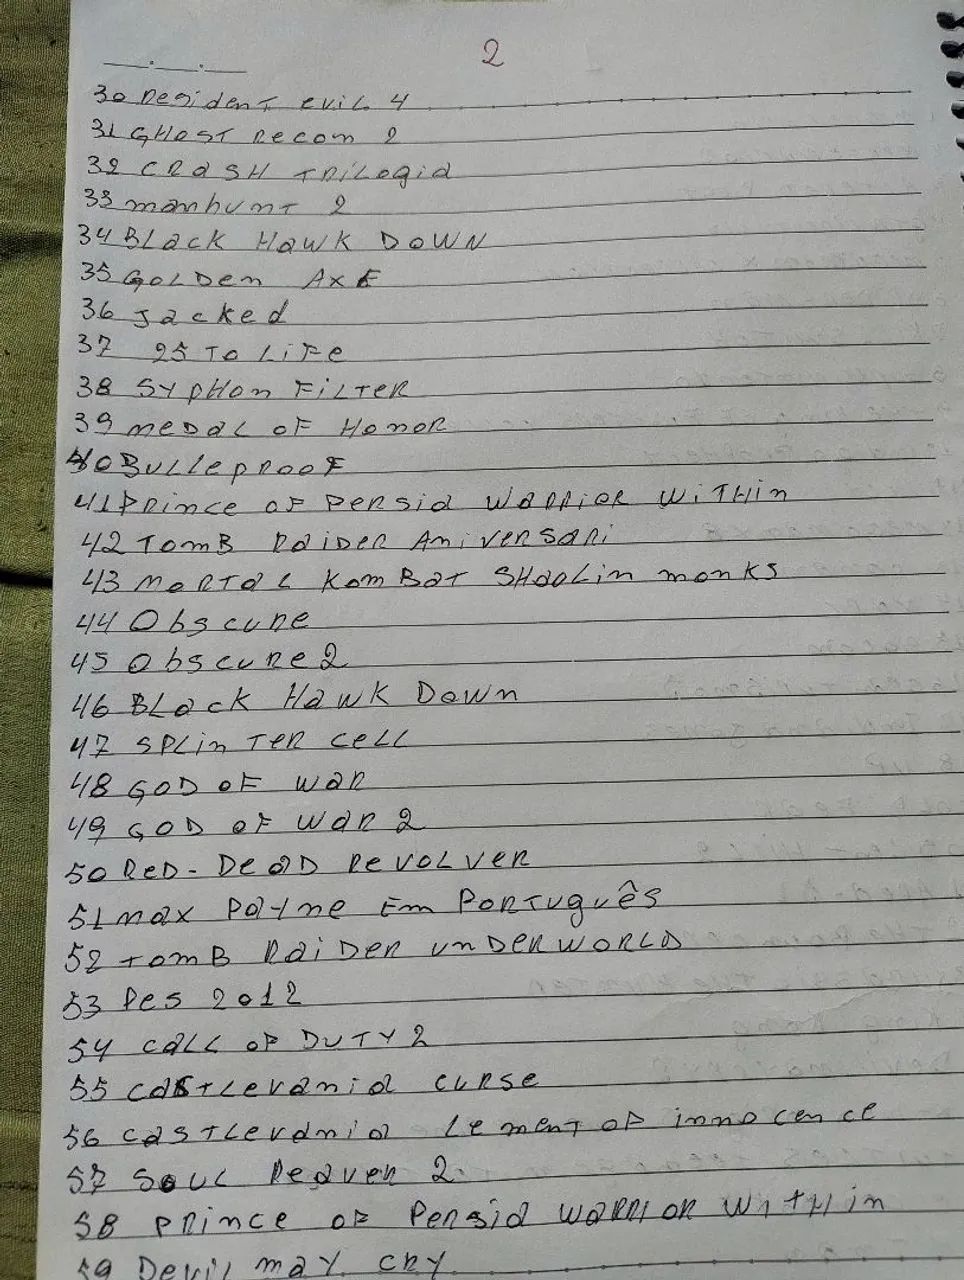 2
30 Resident evil 4
31 GHOST Recom 2
32 CRASH TRiLogia
33 manhunt 2
34 BLack HawK DOWN
35 GOLDEm AXE
36 Jacked
37 25 To LiFe
38 SypHon FiLTeR
39 meDaL oF HonoR
40 BulleprooF
41 Prince oF Persia Warrior WiTHin
42 TomB RaiDer AniVerSari
43 MoRTaL KomBaT SHaoLin monKs
44 Obscure
45 Obscure 2
46 BLacK HawK Down
47 SPLinTeR ceLL
48 GOD oF War
49 GOD oF War 2
50 ReD-DeaD ReVoLVeR
51 max Payne Em PoRTuguês
52 TomB RaiDer unDeRWoRLD
53 Pes 2012
54 CaLL oF DuTY 2
55 CasTLevania curse
56 casTLevania Lement oF innocence
57 Soul Reaver 2
58 Prince oF Persia WaRRioR WiTHin
59 Devil may cry